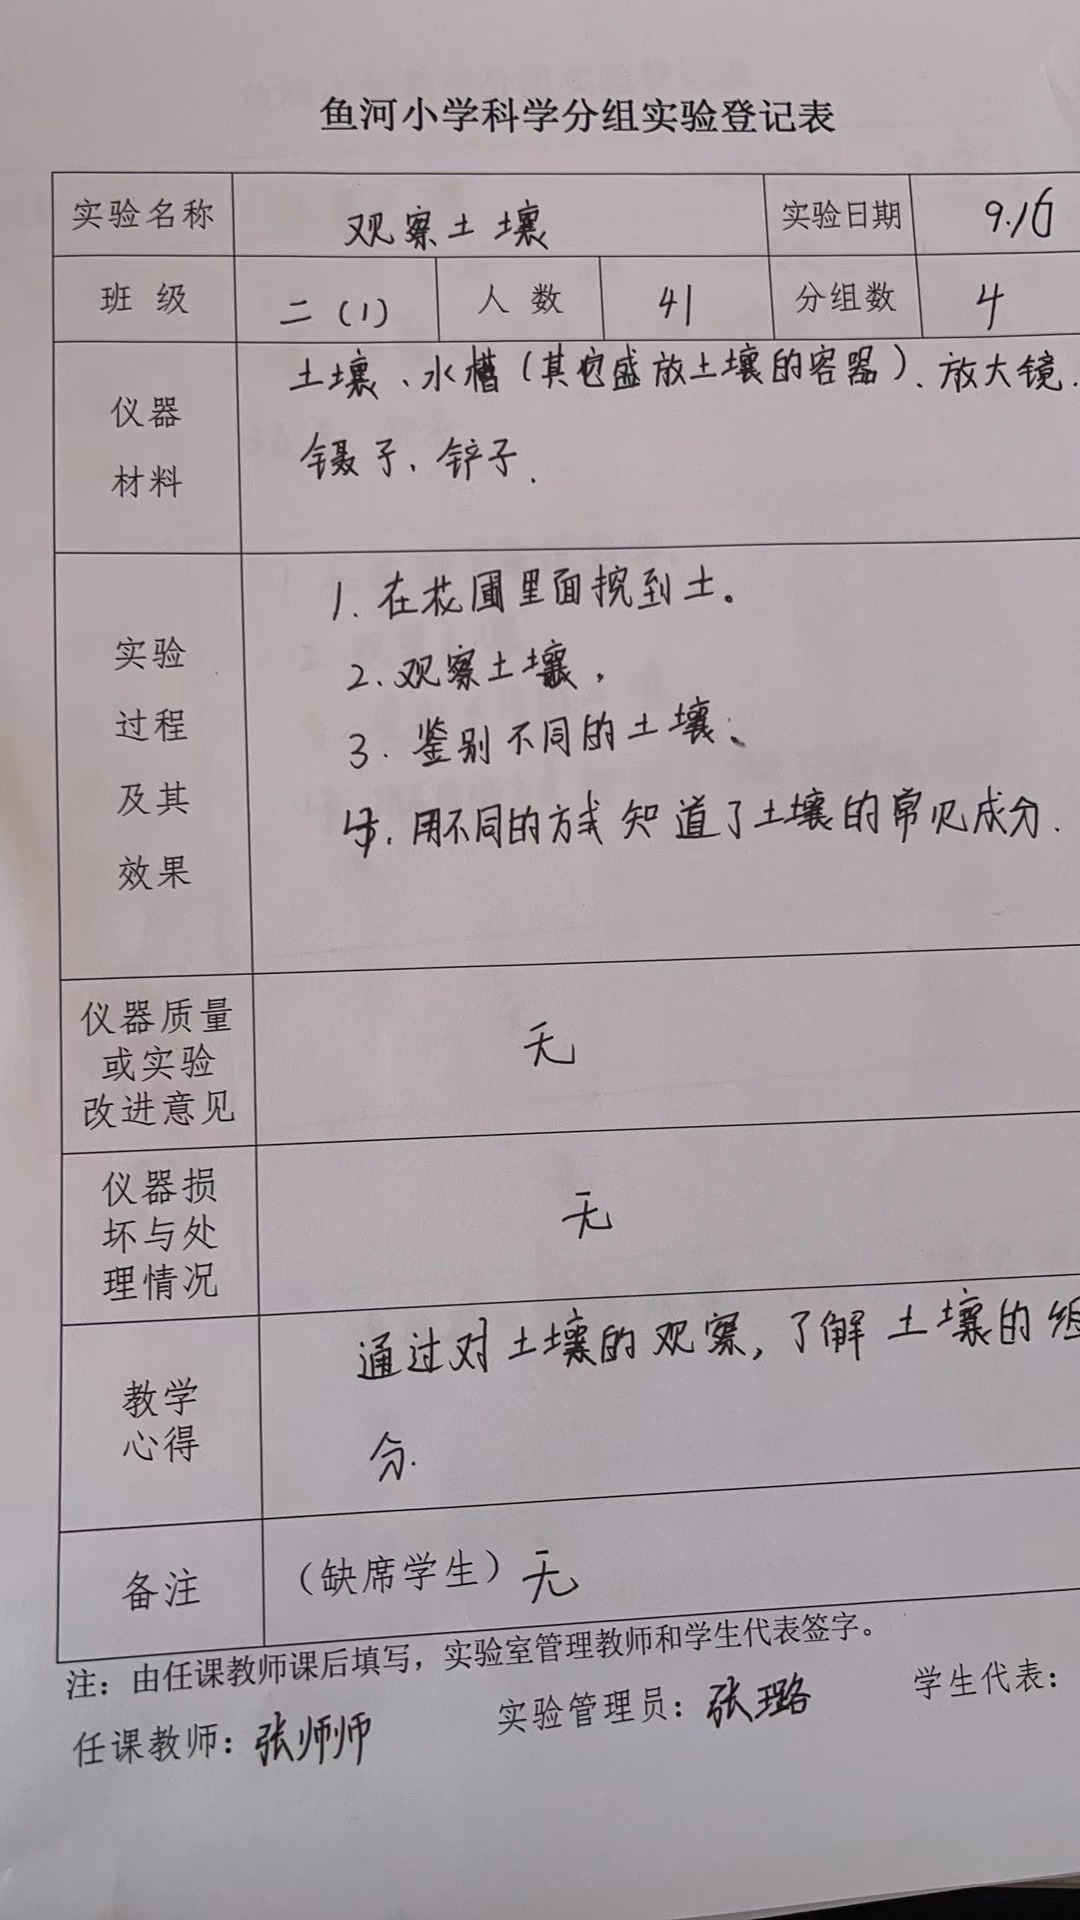 鱼河小学科学分组实验登记表
实验名称 观察土壤 实验日期 9.16
班 级 二（1） 人 数 41 分组数 4
仪器 材料 土壤、水槽（其它盛放土壤的容器）、放大镜.
镊子、铲子.
实验 过程 及其 效果
1. 在花圃里面挖到土。
2. 观察土壤，
3. 鉴别不同的土壤、
4. 用不同的方式知道了土壤的常见成分.
仪器质量
或实验 无
改进意见
仪器损
坏与处 无
理情况
教学 心得 通过对土壤的观察，了解土壤的组
分.
备注 （缺席学生）无
注：由任课教师课后填写，实验室管理教师和学生代表签字。
任课教师：张师师 实验管理员：张璐 学生代表：